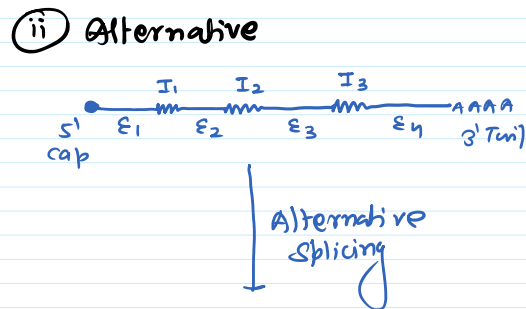 ii Alternative
I1 I2 I3
5' E1 E2 E3 E4 AAAA
cap 3' Tail
Alternative
Splicing